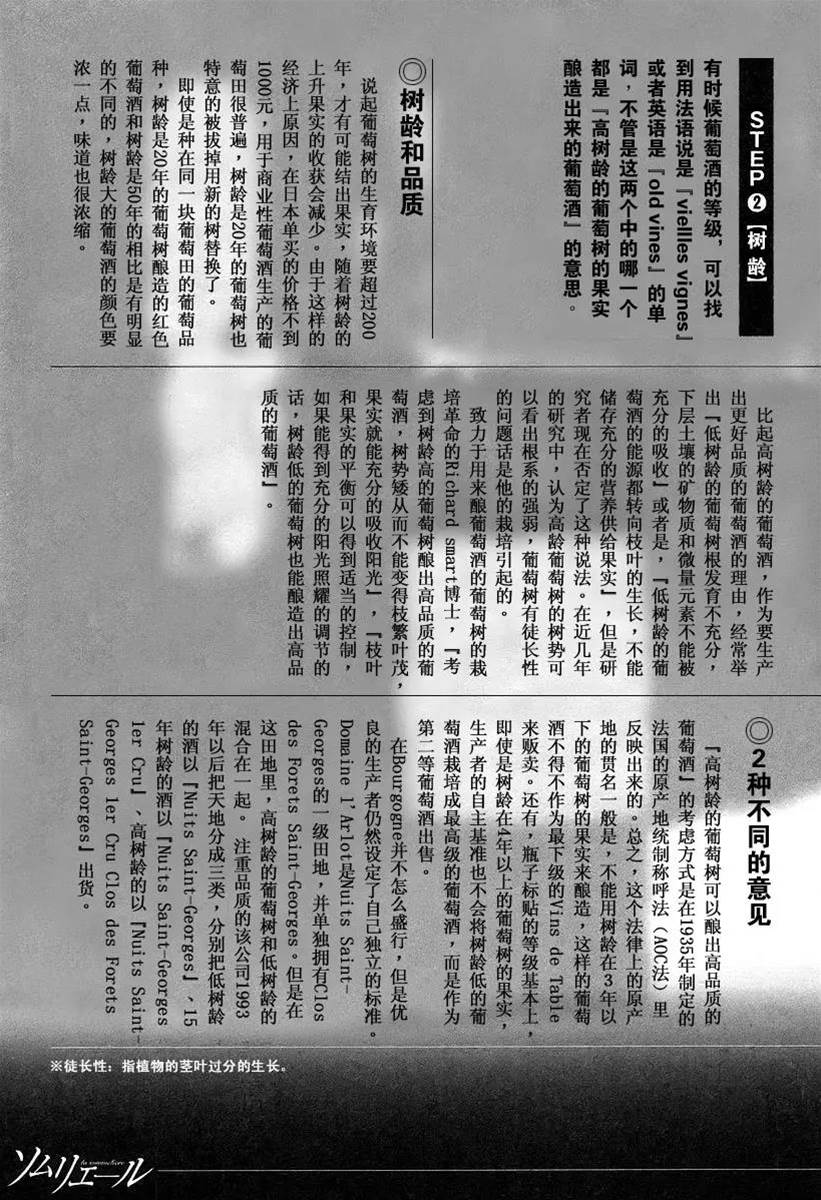 STEP❷【树龄】
有时候葡萄酒的等级，可以找
到用法语说是『viellles vignes』
或者英语是『old vines』的单
词，不管是这两个中的哪一个
都是『高树龄的葡萄树的果实
酿造出来的葡萄酒』的意思。
◎树龄和品质
说起葡萄树的生育环境要超过200
年，才有可能结出果实，随着树龄的
上升果实的收获会减少。由于这样的
经济上原因，在日本单买的价格不到
1000元，用于商业性葡萄酒生产的葡
萄田很普遍，树龄是20年的葡萄树也
特意的被拔掉用新的树替换了。
即使是种在同一块葡萄田的葡萄品
种，树龄是20年的葡萄树酿造的红色
葡萄酒和树龄是50年的相比是有明显
的不同的，树龄大的葡萄酒的颜色要
浓一点，味道也很浓缩。
比起高树龄的葡萄酒，作为要生产
出更好品质的葡萄酒的理由，经常举
出『低树龄的葡萄树根发育不充分，
下层土壤的矿物质和微量元素不能被
充分的吸收』或者是，『低树龄的葡
萄酒的能源都转向枝叶的生长，不能
储存充分的营养供给果实』，但是研
究者现在否定了这种说法。在近几年
的研究中，认为高龄葡萄树的树势可
以看出根系的强弱，葡萄树有徒长性
的问题话是他的栽培引起的。
致力于用来酿葡萄酒的葡萄树的栽
培革命的Richard smart博士，『考
虑到树龄高的葡萄树酿出高品质的葡
萄酒，树势矮从而不能变得枝繁叶茂，
果实就能充分的吸收阳光』，『枝叶
和果实的平衡可以得到适当的控制，
如果能得到充分的阳光照耀的调节的
话，树龄低的葡萄树也能酿造出高品
质的葡萄酒』。
◎2种不同的意见
『高树龄的葡萄树可以酿出高品质的
葡萄酒』的考虑方式是在1935年制定的
法国的原产地统制称呼法（AOC法）里
反映出来的。总之，这个法律上的原产
地的贯名一般是，不能用树龄在3年以
下的葡萄树的果实来酿造，这样的葡萄
酒不得不作为最下级的Vins de Table
来贩卖。还有，瓶子标贴的等级基本上，
即使是树龄在4年以上的葡萄树的果实，
生产者的自主基准也不会将树龄低的葡
萄酒栽培成最高级的葡萄酒，而是作为
第二等葡萄酒出售。
在Bourgogne并不怎么盛行，但是优
良的生产者仍然设定了自己独立的标准。
Domaine l'Arlot是Nuits Saint-
Georges的一级田地，并单独拥有Clos
des Forets Saint-Georges。但是在
这田地里，高树龄的葡萄树和低树龄的
混合在一起。 注重品质的该公司1993
年以后把天地分成三类，分别把低树龄
的酒以『Nuits Saint-Georges』、15
年树龄的酒以『Nuits Saint-Georges
1er Cru』、高树龄的以『Nuits Saint-
Georges 1er Cru Clos des Forets
Saint-Georges』出货。
※徒长性：指植物的茎叶过分的生长。
ソムリエール